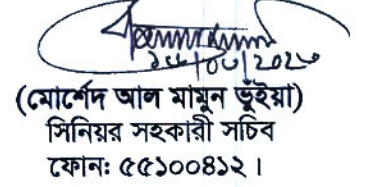 (মোর্শেদ আল মামুন ভূঁইয়া)
সিনিয়র সহকারী সচিব
ফোন: ৫৫১০০৪১২।